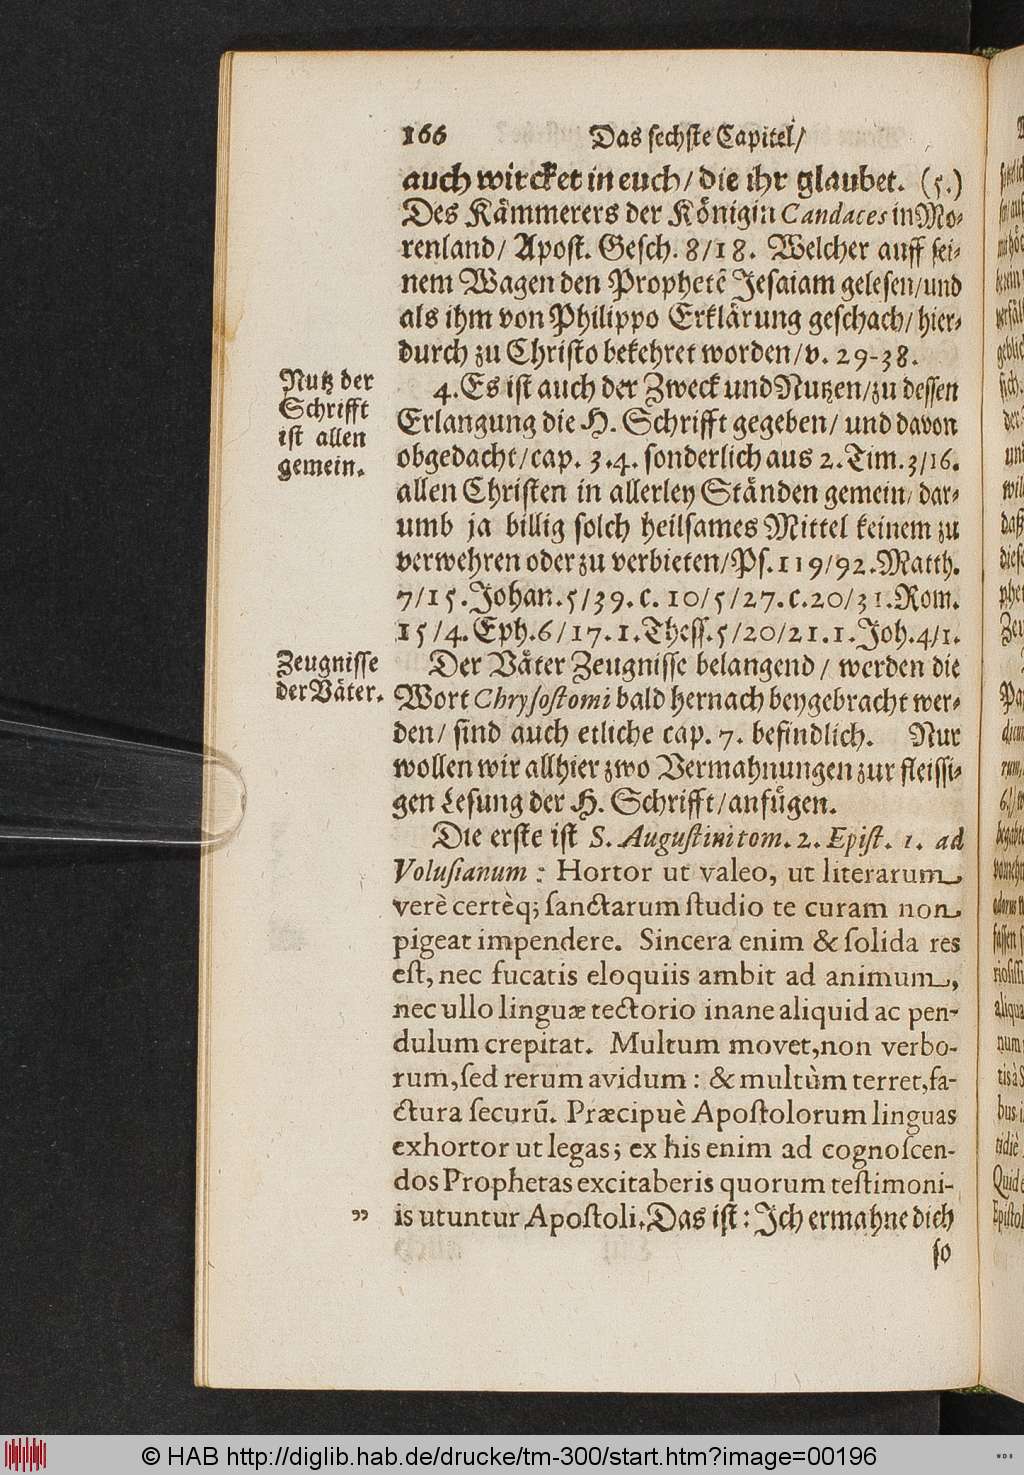 166 Das sechste Capitel/
auch wircket in euch/ die ihr glaubet. (5.)
Des Kämmerers der Königin Candaces in Mo-
renland/ Apost. Gesch. 8/18. Welcher auff sei-
nem Wagen den Prophetẽ Jesaiam gelesen/und
als ihm von Philippo Erklärung geschach/ hier-
durch zu Christo bekehret worden/v. 29-38.
Nutz der
Schrifft
ist allen
gemein.
4. Es ist auch der Zweck und Nutzen/zu dessen
Erlangung die H. Schrifft gegeben/ und davon
obgedacht/cap. 3.4. sonderlich aus 2. Tim. 3/16.
allen Christen in allerley Ständen gemein/ dar-
umb ja billig solch heilsames Mittel keinem zu
verwehren oder zu verbieten/Ps. 119/92. Matth.
7/15. Johan. 5/39. c. 10/5/27. c. 20/31. Rom.
15/4. Eph. 6/17. 1. Thess. 5/20/21. 1. Joh. 4/1.
Zeugnisse
der Väter.
Der Väter Zeugnisse belangend/ werden die
Wort Chrysostomi bald hernach beygebracht wer-
den/ sind auch etliche cap. 7. befindlich. Nur
wollen wir allhier zwo Vermahnungen zur fleissi-
gen Lesung der H. Schrifft/anfügen.
Die erste ist S. Augustini tom. 2. Epist. 1. ad
Volusianum: Hortor ut valeo, ut literarum
verè certèq; sanctarum studio te curam non
pigeat impendere. Sincera enim & solida res
est, nec fucatis eloquiis ambit ad animum,
nec ullo linguæ tectorio inane aliquid ac pen-
dulum crepitat. Multum movet, non verbo-
rum, sed rerum avidum: & multùm terret, fa-
ctura securũ. Præcipuè Apostolorum linguas
exhortor ut legas; ex his enim ad cognoscen-
dos Prophetas excitaberis quorum testimoni-
" is utuntur Apostoli. Das ist: Ich ermahne dich
so
© HAB http://diglib.hab.de/drucke/tm-300/start.htm?image=00196